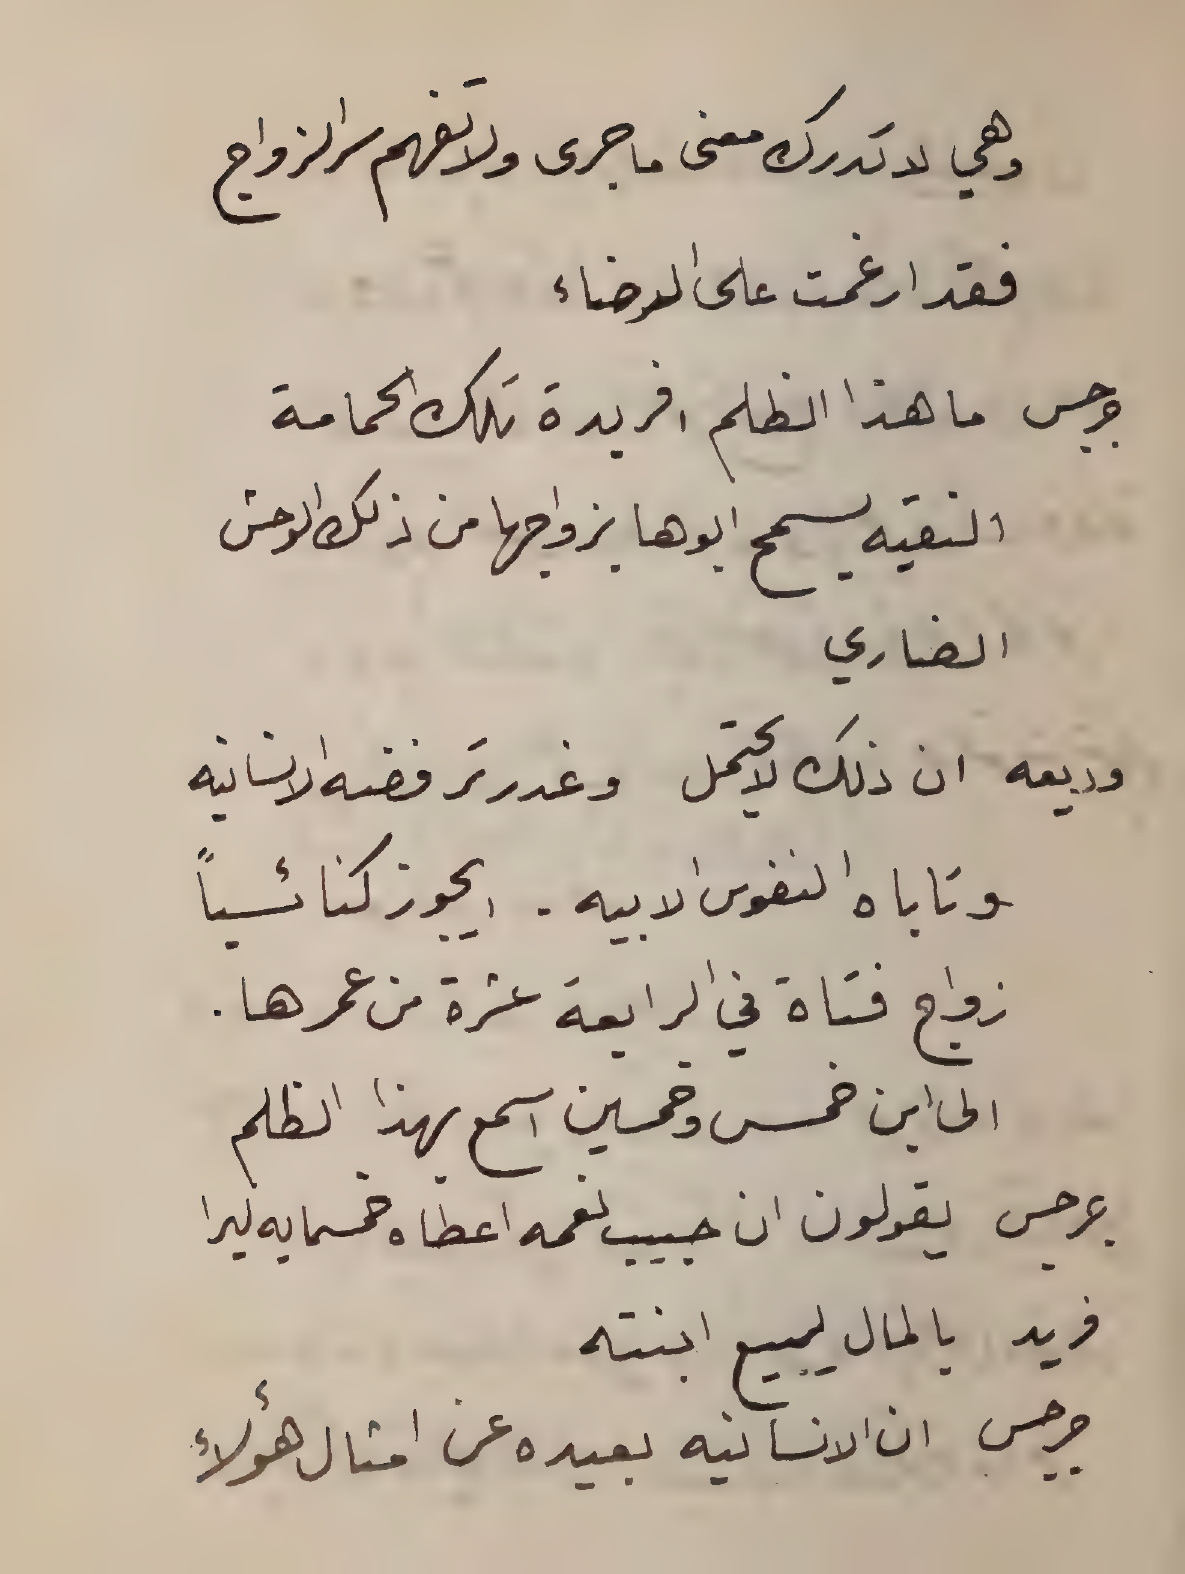 وهي لا تدرك معنى ما جرى ولا تفهم سر الزواج
فقد ارغمت على الامضاء
جرجس ما هذا الظلم افريدة تلك الحمامة
النقيه يسمح ابوها بزواجها من ذلك الوحش
الضاري
وديعه ان ذلك لا يحتمل وغدر ترفضه الانسانيه
وتاباه النفوس الابيه . ايجوز كنائسياً
زواج فتاة في الرابعة عشرة من عمرها .
الى ابن خمس وخمسين اسمع بهذا الظلم
جرجس يقولون ان حبيب نعمه اعطاه خمسمايه ليرا
فريد بالمال ليبيع ابنته
جرجس ان الانسانيه بعيده عن امثال هؤلاء